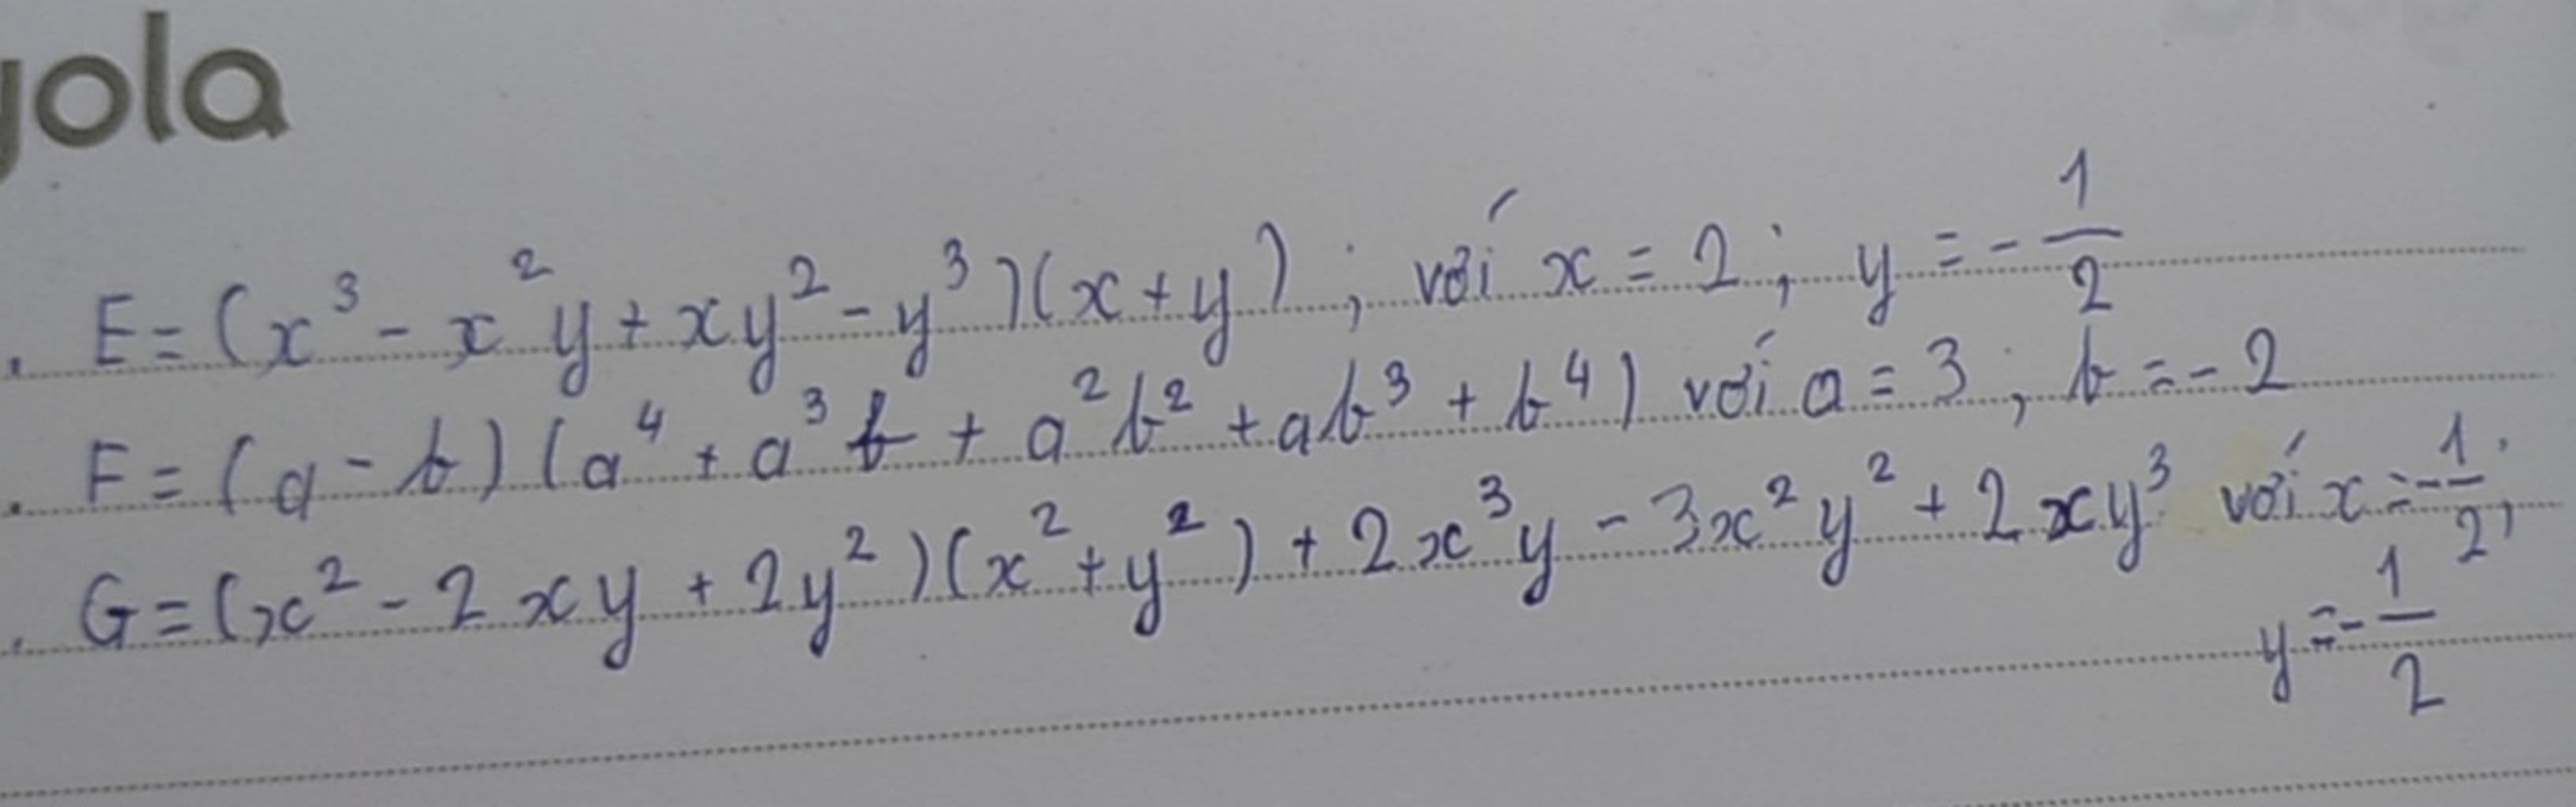 yola
. E = (x³ - x²y + xy² - y³)(x + y) ; với x = 2 ; y = -1/2
. F = (a - b)(a⁴ + a³b + a²b² + ab³ + b⁴) với a = 3 ; b = -2
. G = (x² - 2xy + 2y²)(x² + y²) + 2x³y - 3x²y² + 2xy³ với x = -1/2 ;
y = -1/2